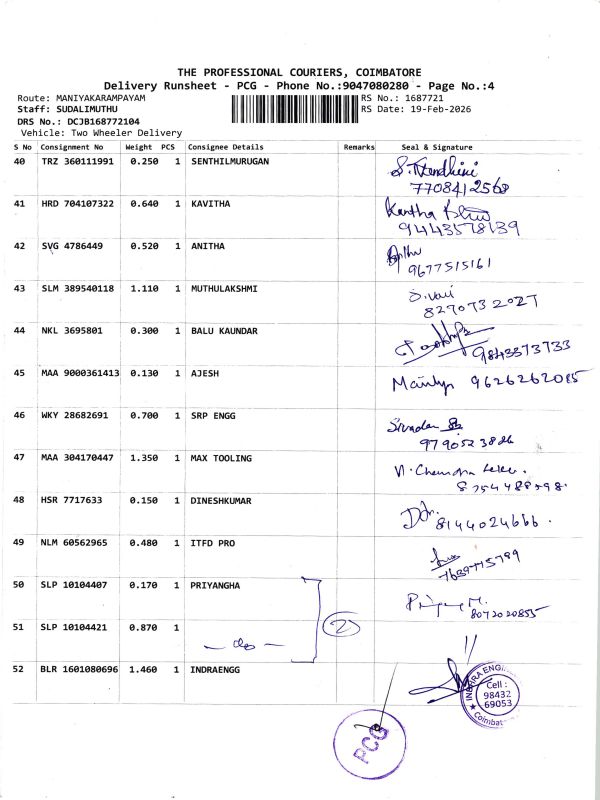 THE PROFESSIONAL COURIERS, COIMBATORE
Delivery Runsheet - PCG - Phone No.:9047080280 - Page No.:4
Route: MANIYAKARAMPAYAM
RS No.: 1687721
Staff: SUDALIMUTHU
RS Date: 19-Feb-2026
DRS No.: DCJB168772104
Vehicle: Two Wheeler Delivery
S No Consignment No Weight PCS Consignee Details Remarks Seal & Signature
40 TRZ 360111991 0.250 1 SENTHILMURUGAN
7708412568
41 HRD 704107322 0.640 1 KAVITHA
9443578139
42 SVG 4786449 0.520 1 ANITHA
9677515161
43 SLM 389540118 1.110 1 MUTHULAKSHMI
8270732027
44 NKL 3695801 0.300 1 BALU KAUNDAR
9843373733
45 MAA 9000361413 0.130 1 AJESH
9626262085
46 WKY 28682691 0.700 1 SRP ENGG
47 MAA 304170447 1.350 1 MAX TOOLING
48 HSR 7717633 0.150 1 DINESHKUMAR
8144024666.
49 NLM 60562965 0.480 1 ITFD PRO
50 SLP 10104407 0.170 1 PRIYANGHA
8072020855
51 SLP 10104421 0.870 1
— do — 2
52 BLR 1601080696 1.460 1 INDRAENGG
Cell :
98432
69053
PCG